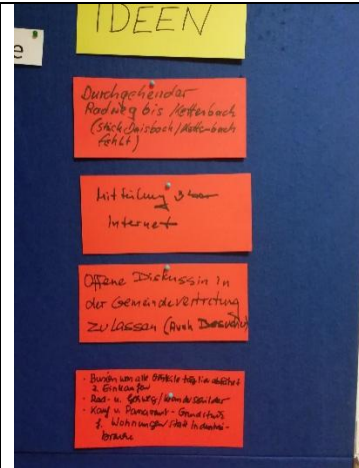 IDEEN
e
Durchgehender
Radweg bis Kettenbach
(Stück Daisbach/Kettenbach
fehlt)
Mitteilung
Internet
Offene Diskussin in
der Gemeindevertretung
zu lassen (Auch Besucher)
z. Einkaufen
- Rad- u. Gehweg/
- Kauf v. Panoramt - Grundstück
f. Wohnungen statt Industrie-
brache